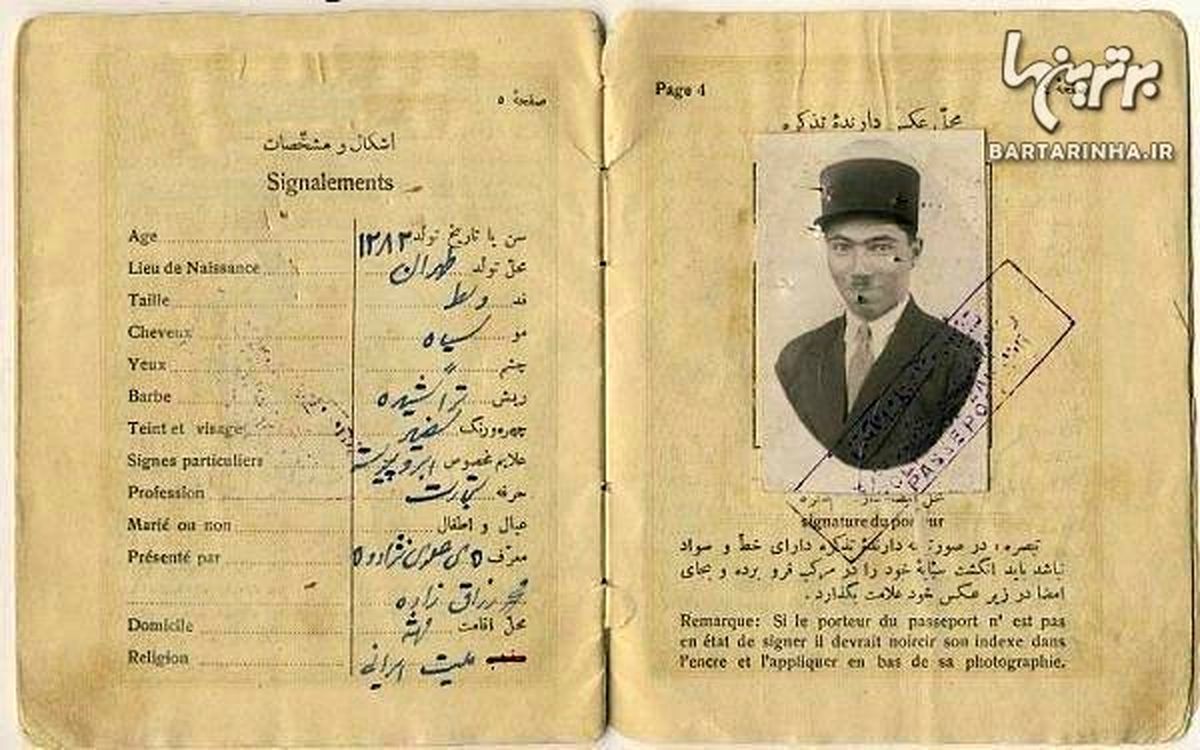 برترینها
BARTARINHA.IR
Page 4
محلّ عکس دارندهٔ تذکره
PASSEPO
signature du por ur
تبصره در صورت دارندهٔ تذکره دارای خطّ و سواد
نباشد باید انگشت سبّابهٔ خود را در مرکب فرو برده و بجای
امضا در زیر عکس خود علامت بگذارد.
Remarque: Si le porteur du passeport n' est pas
en état de signer il devrait noircir son indexe dans
l'encre et l'appliquer en bas de sa photographie.
صفحهٔ ٥
اشکال و مشخّصات
Signalements
Age سن یا تاریخ تولد ۱۲۸۲
Lieu de Naissance محلّ تولد طهران
Taille قد وسط
Cheveux مو سیاه
Yeux چشم "
Barbe ریش تراشیده
Teint et visage چهره و رنک
Signes particuliers علایم مخصوص ابرو پیوسته
Profession حرفه تجارت
Marié ou non عیال و اطفال
Présenté par معرّف
رزاق زاده
Domicile محلّ اقامت
Religion ملیت ایرانی